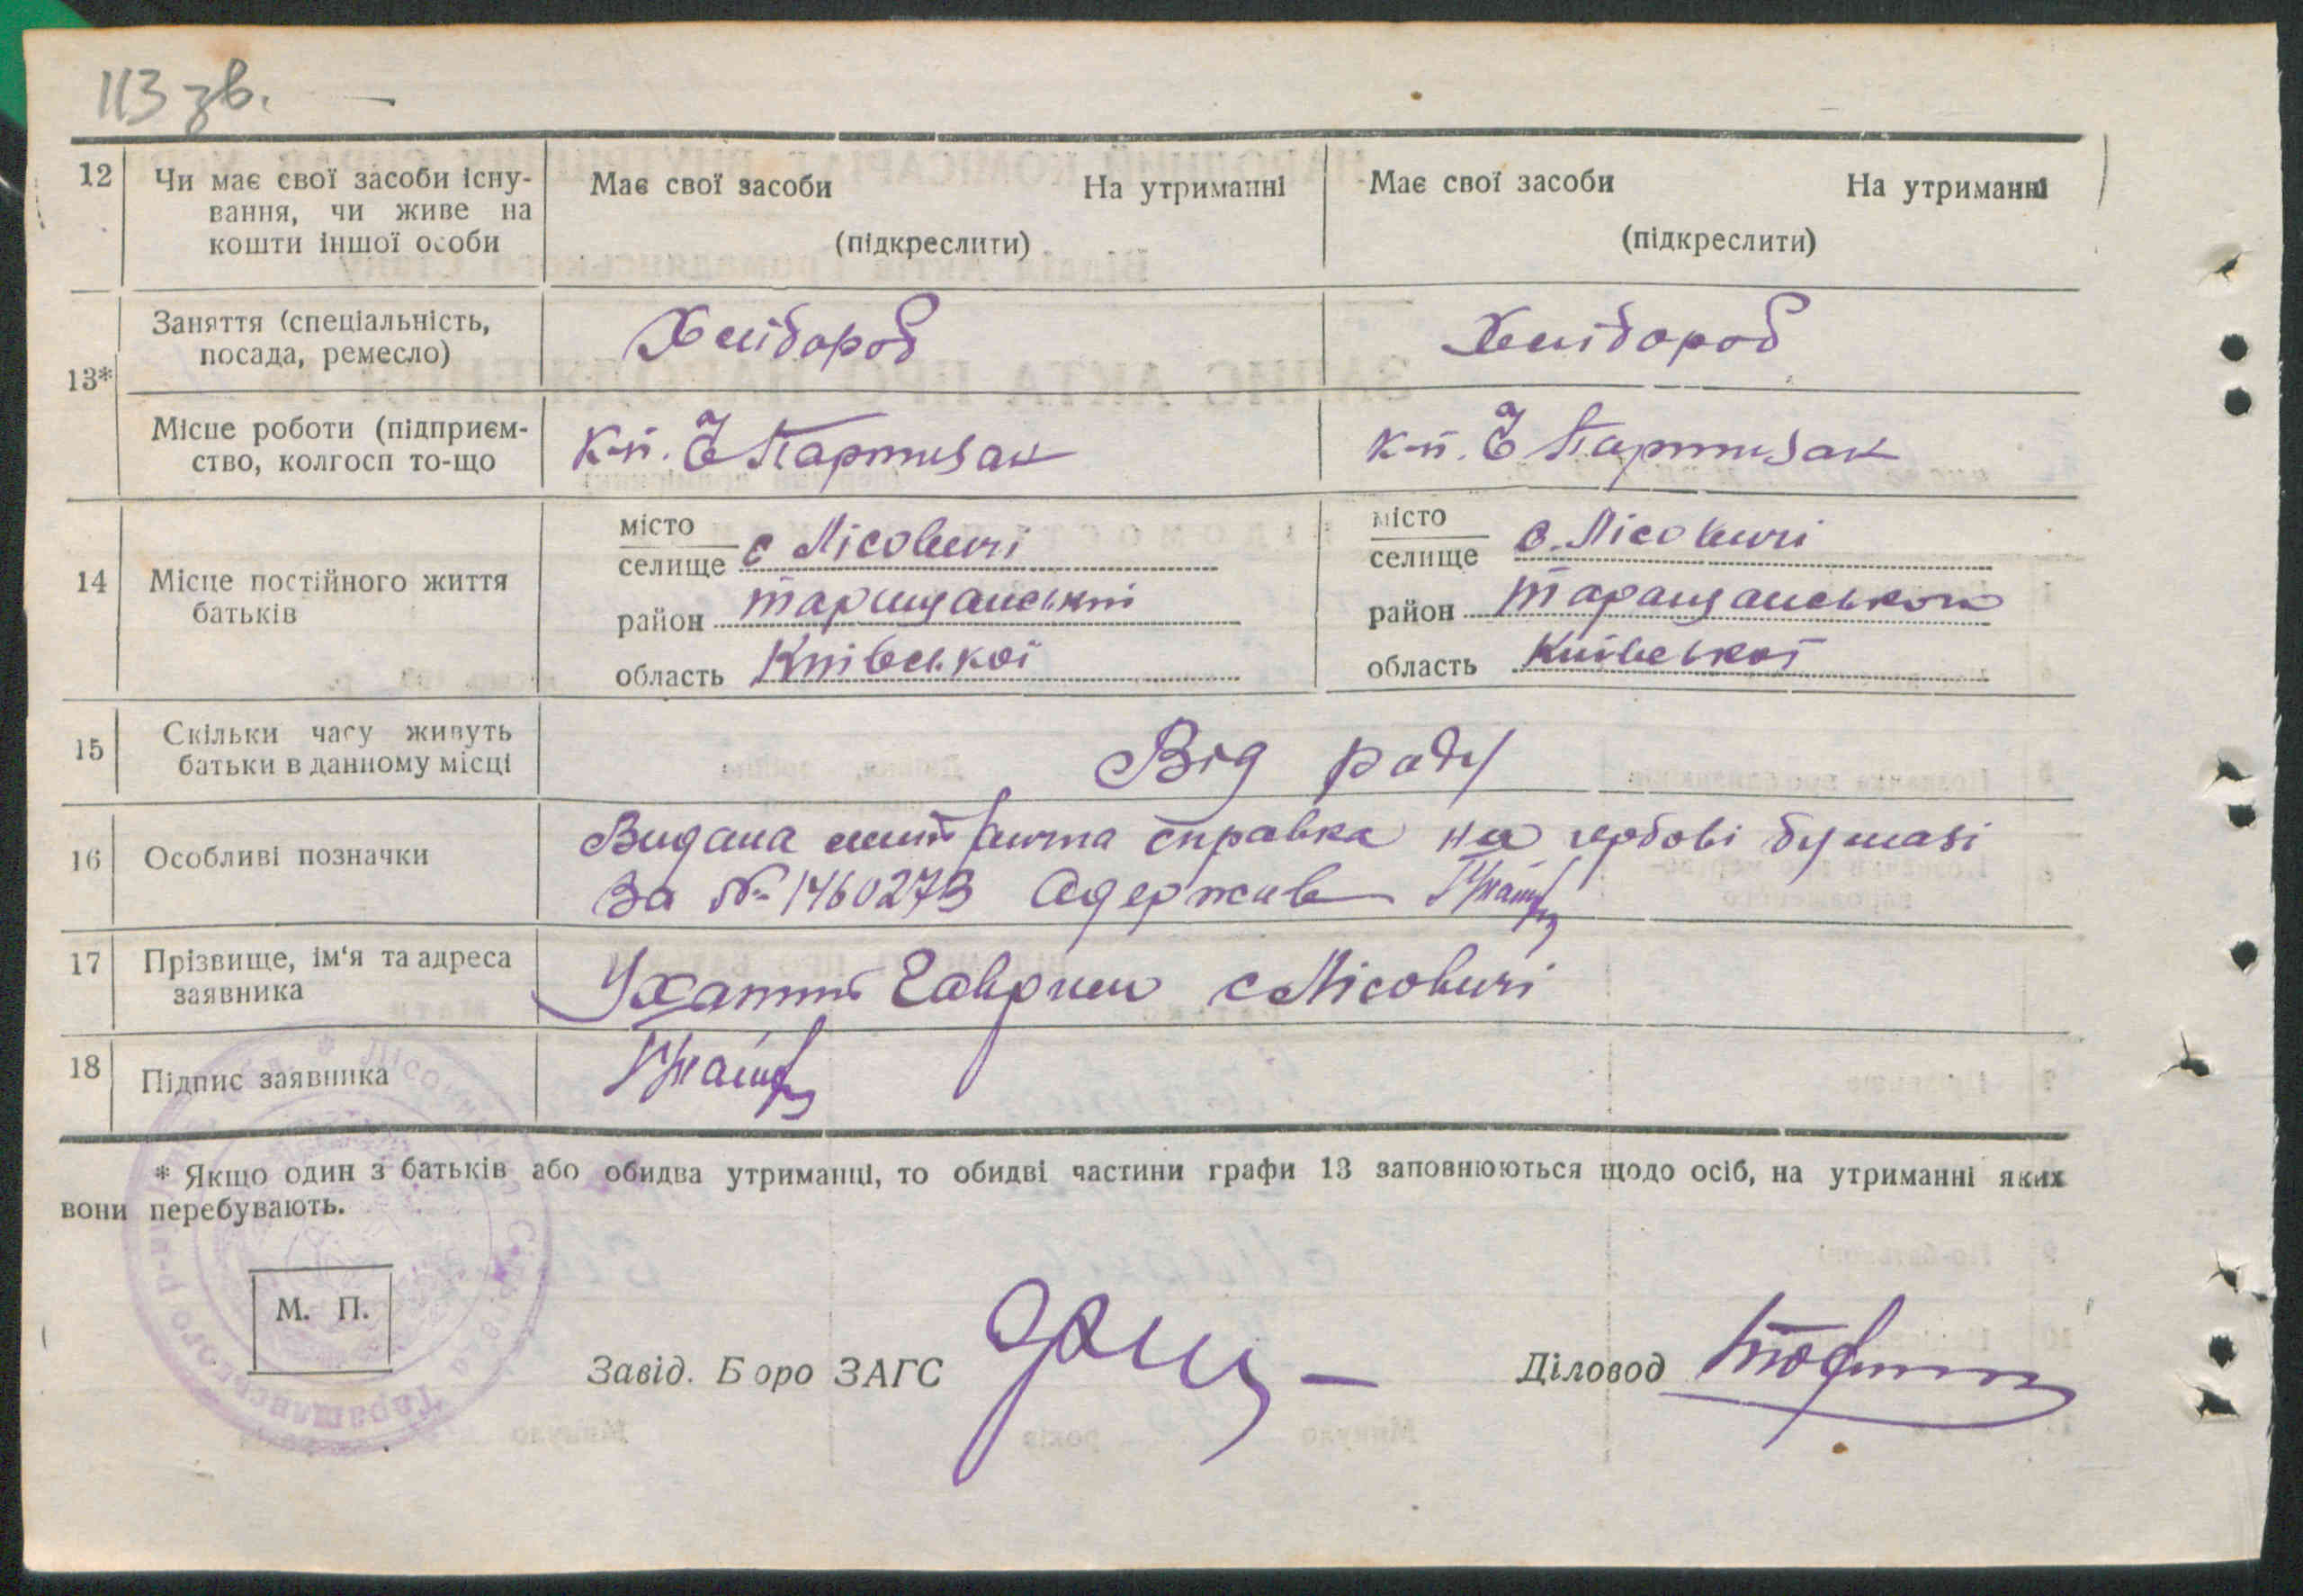 113 зв.
12 Чи має свої засоби існу- Має свої засоби На утриманні Має свої засоби На утриманні
вання, чи живе на
кошти іншої особи (підкреслити) (підкреслити)
13* Заняття (спеціальність, Хлібороб Хлібороб
посада, ремесло)
Місце роботи (підприєм- к-п. Ч Партизан к-п. Ч Партизан
ство, колгосп то-що
14 Місце постійного життя батьків
місто
селище с Лісовичі
район Таращанський
область Київської
місто
селище с. Лісовичі
район Таращанського
область Київської
15 Скільки часу живуть Від роду
батьки в данному місці
16 Особливі позначки Видана справка на гербові бумазі
за № 1460273 Одержав
17 Прізвище, ім'я та адреса Ухатий Гаврило с Лісовичі
заявника
18 Підпис заявника
* Якщо один з батьків або обидва утриманці, то обидві частини графи 13 заповнюються щодо осіб, на утриманні яких
вони перебувають.
М. П.
Завід. Б оро ЗАГС Діловод